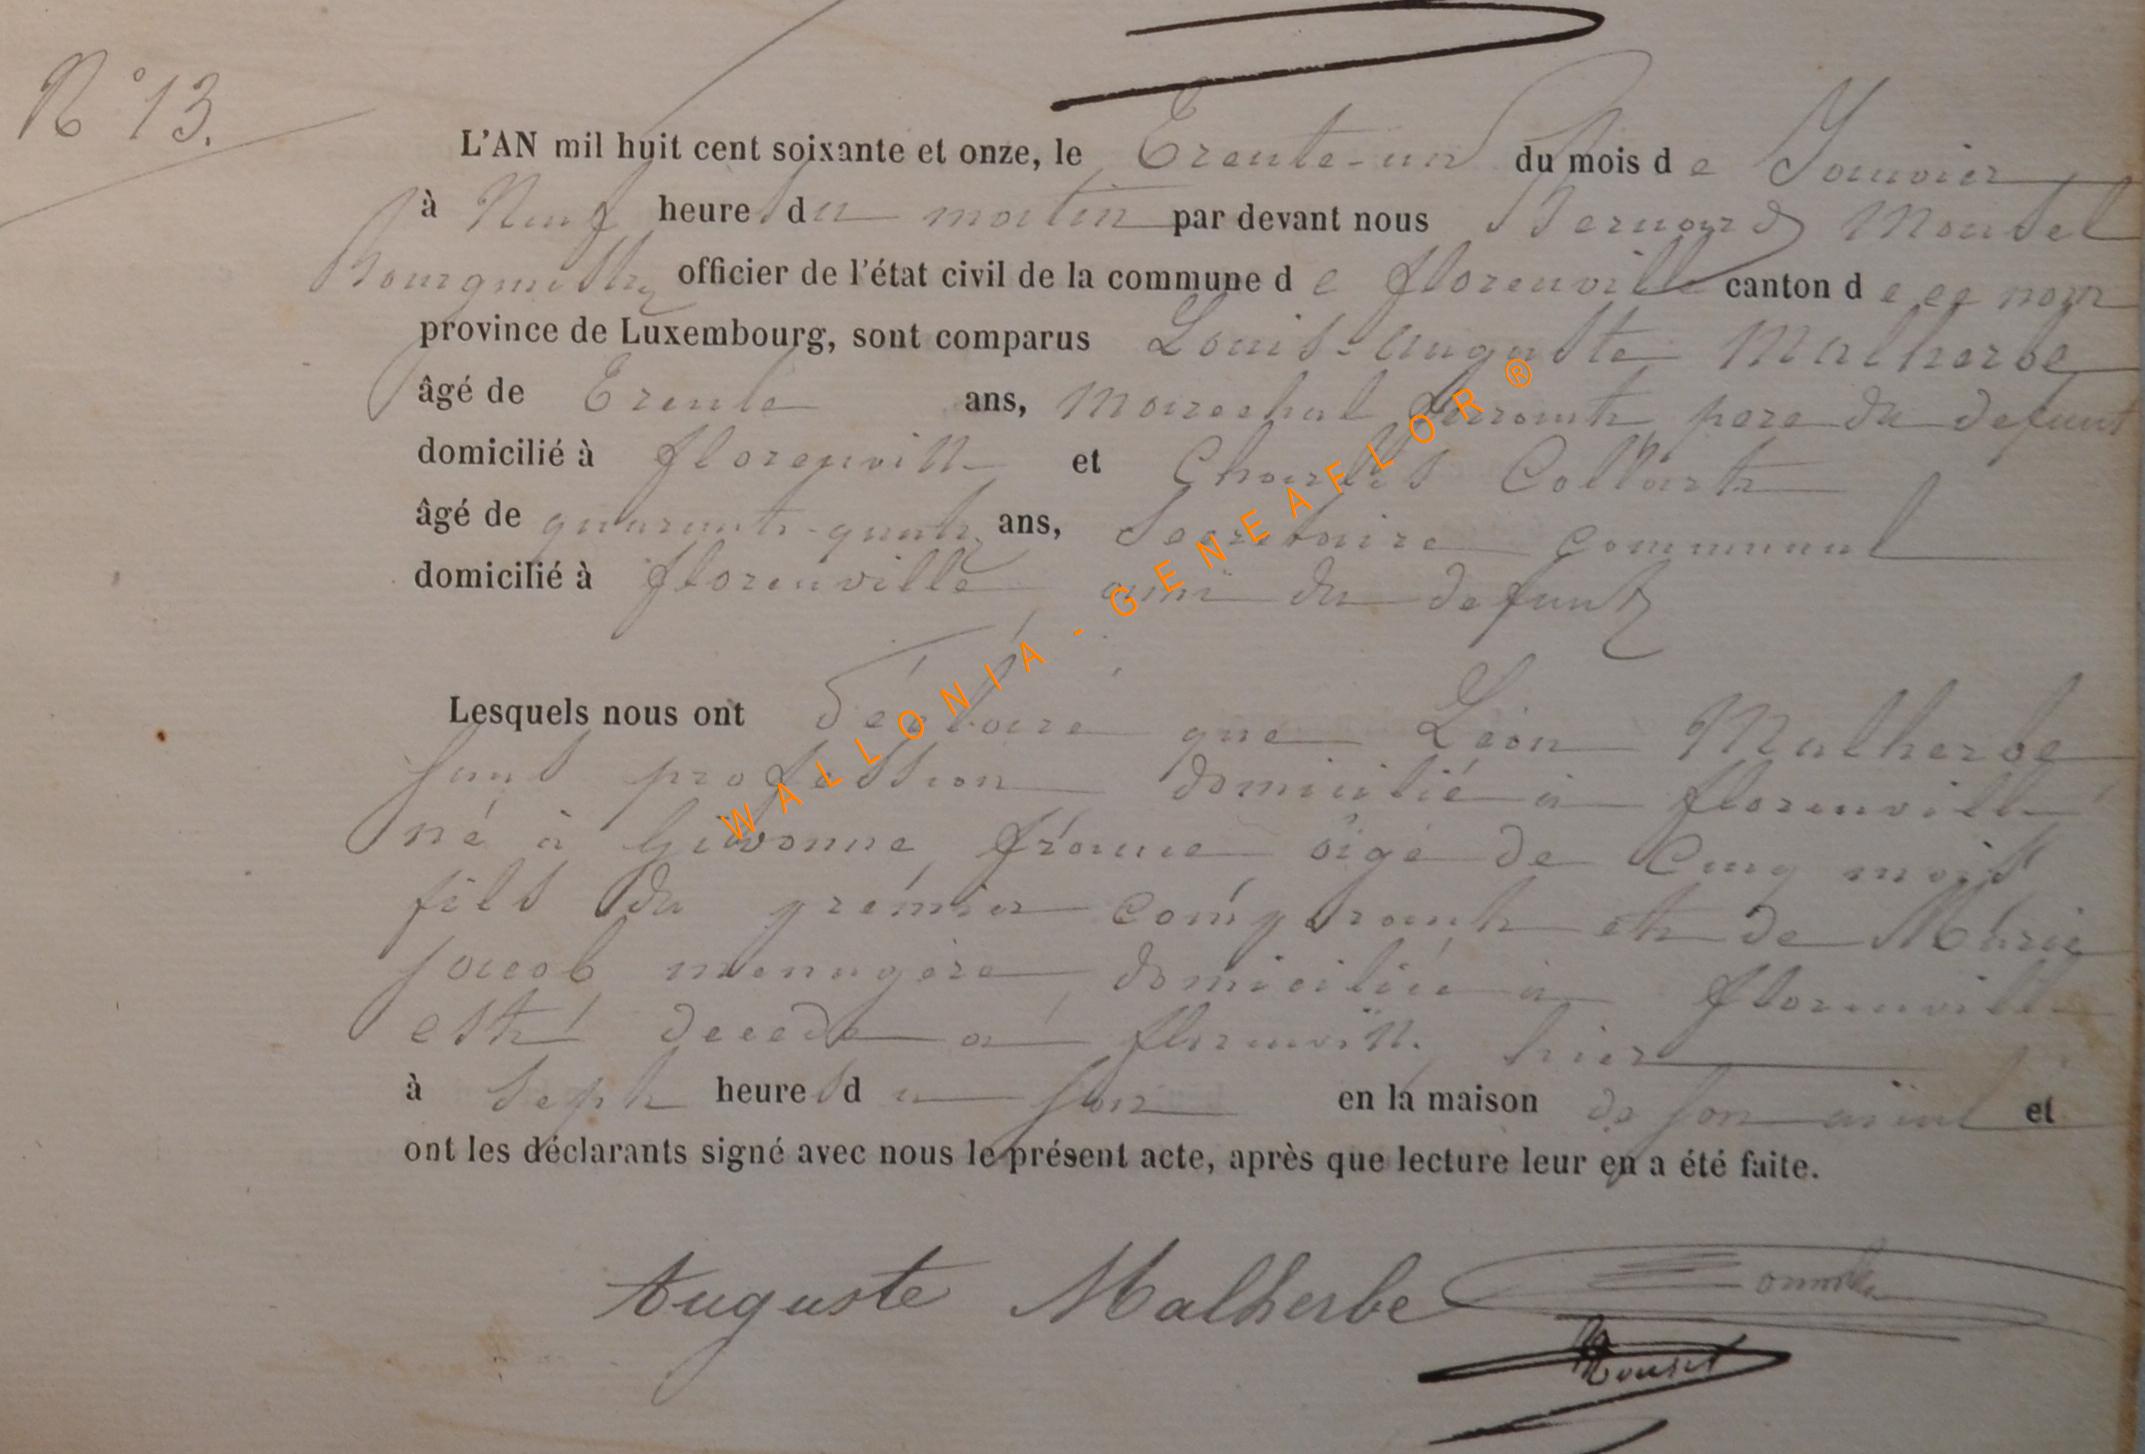 N° 13.
L'AN mil huit cent soixante et onze, le Trente-un du mois de Janvier
à Neuf heures du matin par devant nous Bernard Monsel
Bourgmestre officier de l'état civil de la commune de florenville canton de ce nom
province de Luxembourg, sont comparus Louis-Auguste Malherbe
âgé de Trente ans, Marechal ferrant pere du defunt
domicilié à florenville et Charles Collart
âgé de quarante-quatre ans, Secretaire Communal
domicilié à florenville ami du defunt
Lesquels nous ont déclaré que Léon Malherbe
sans profession domicilié à florenville
né à Givonne france âgé de Cinq mois
fils du premier comparant et de Marie
Jacob menagère domiciliée à florenville
est décédé à florenville hier
à Sept heures du soir en la maison de son aieul et
ont les déclarants signé avec nous le présent acte, après que lecture leur en a été faite.
Auguste Malherbe
WALLONIA - GENEAFLOR ®